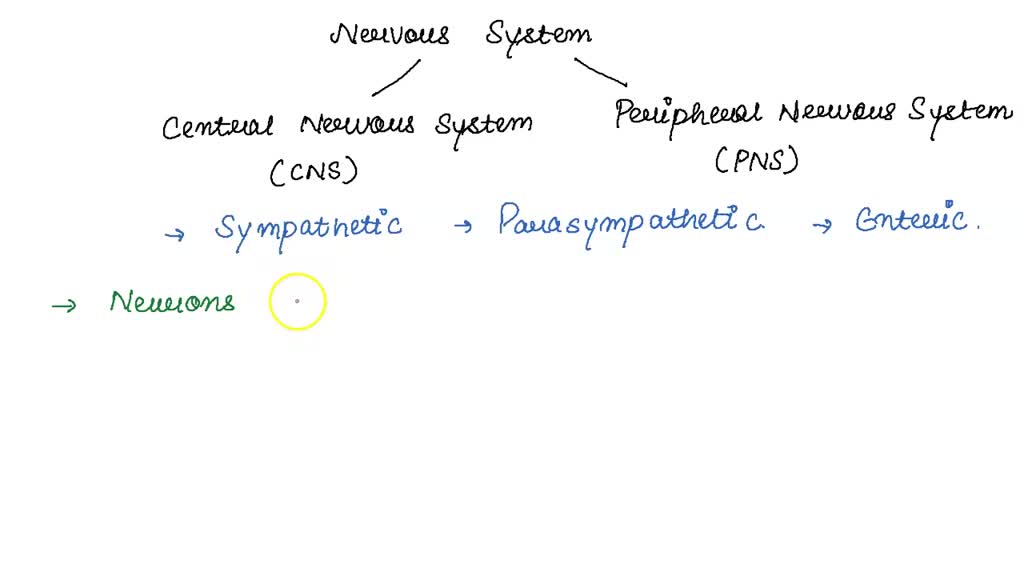 Nervous System
Central Nervous System Peripheral Nervous System
(CNS) (PNS)
→ Sympathetic → Parasympathetic → Enteric.
→ Neurons